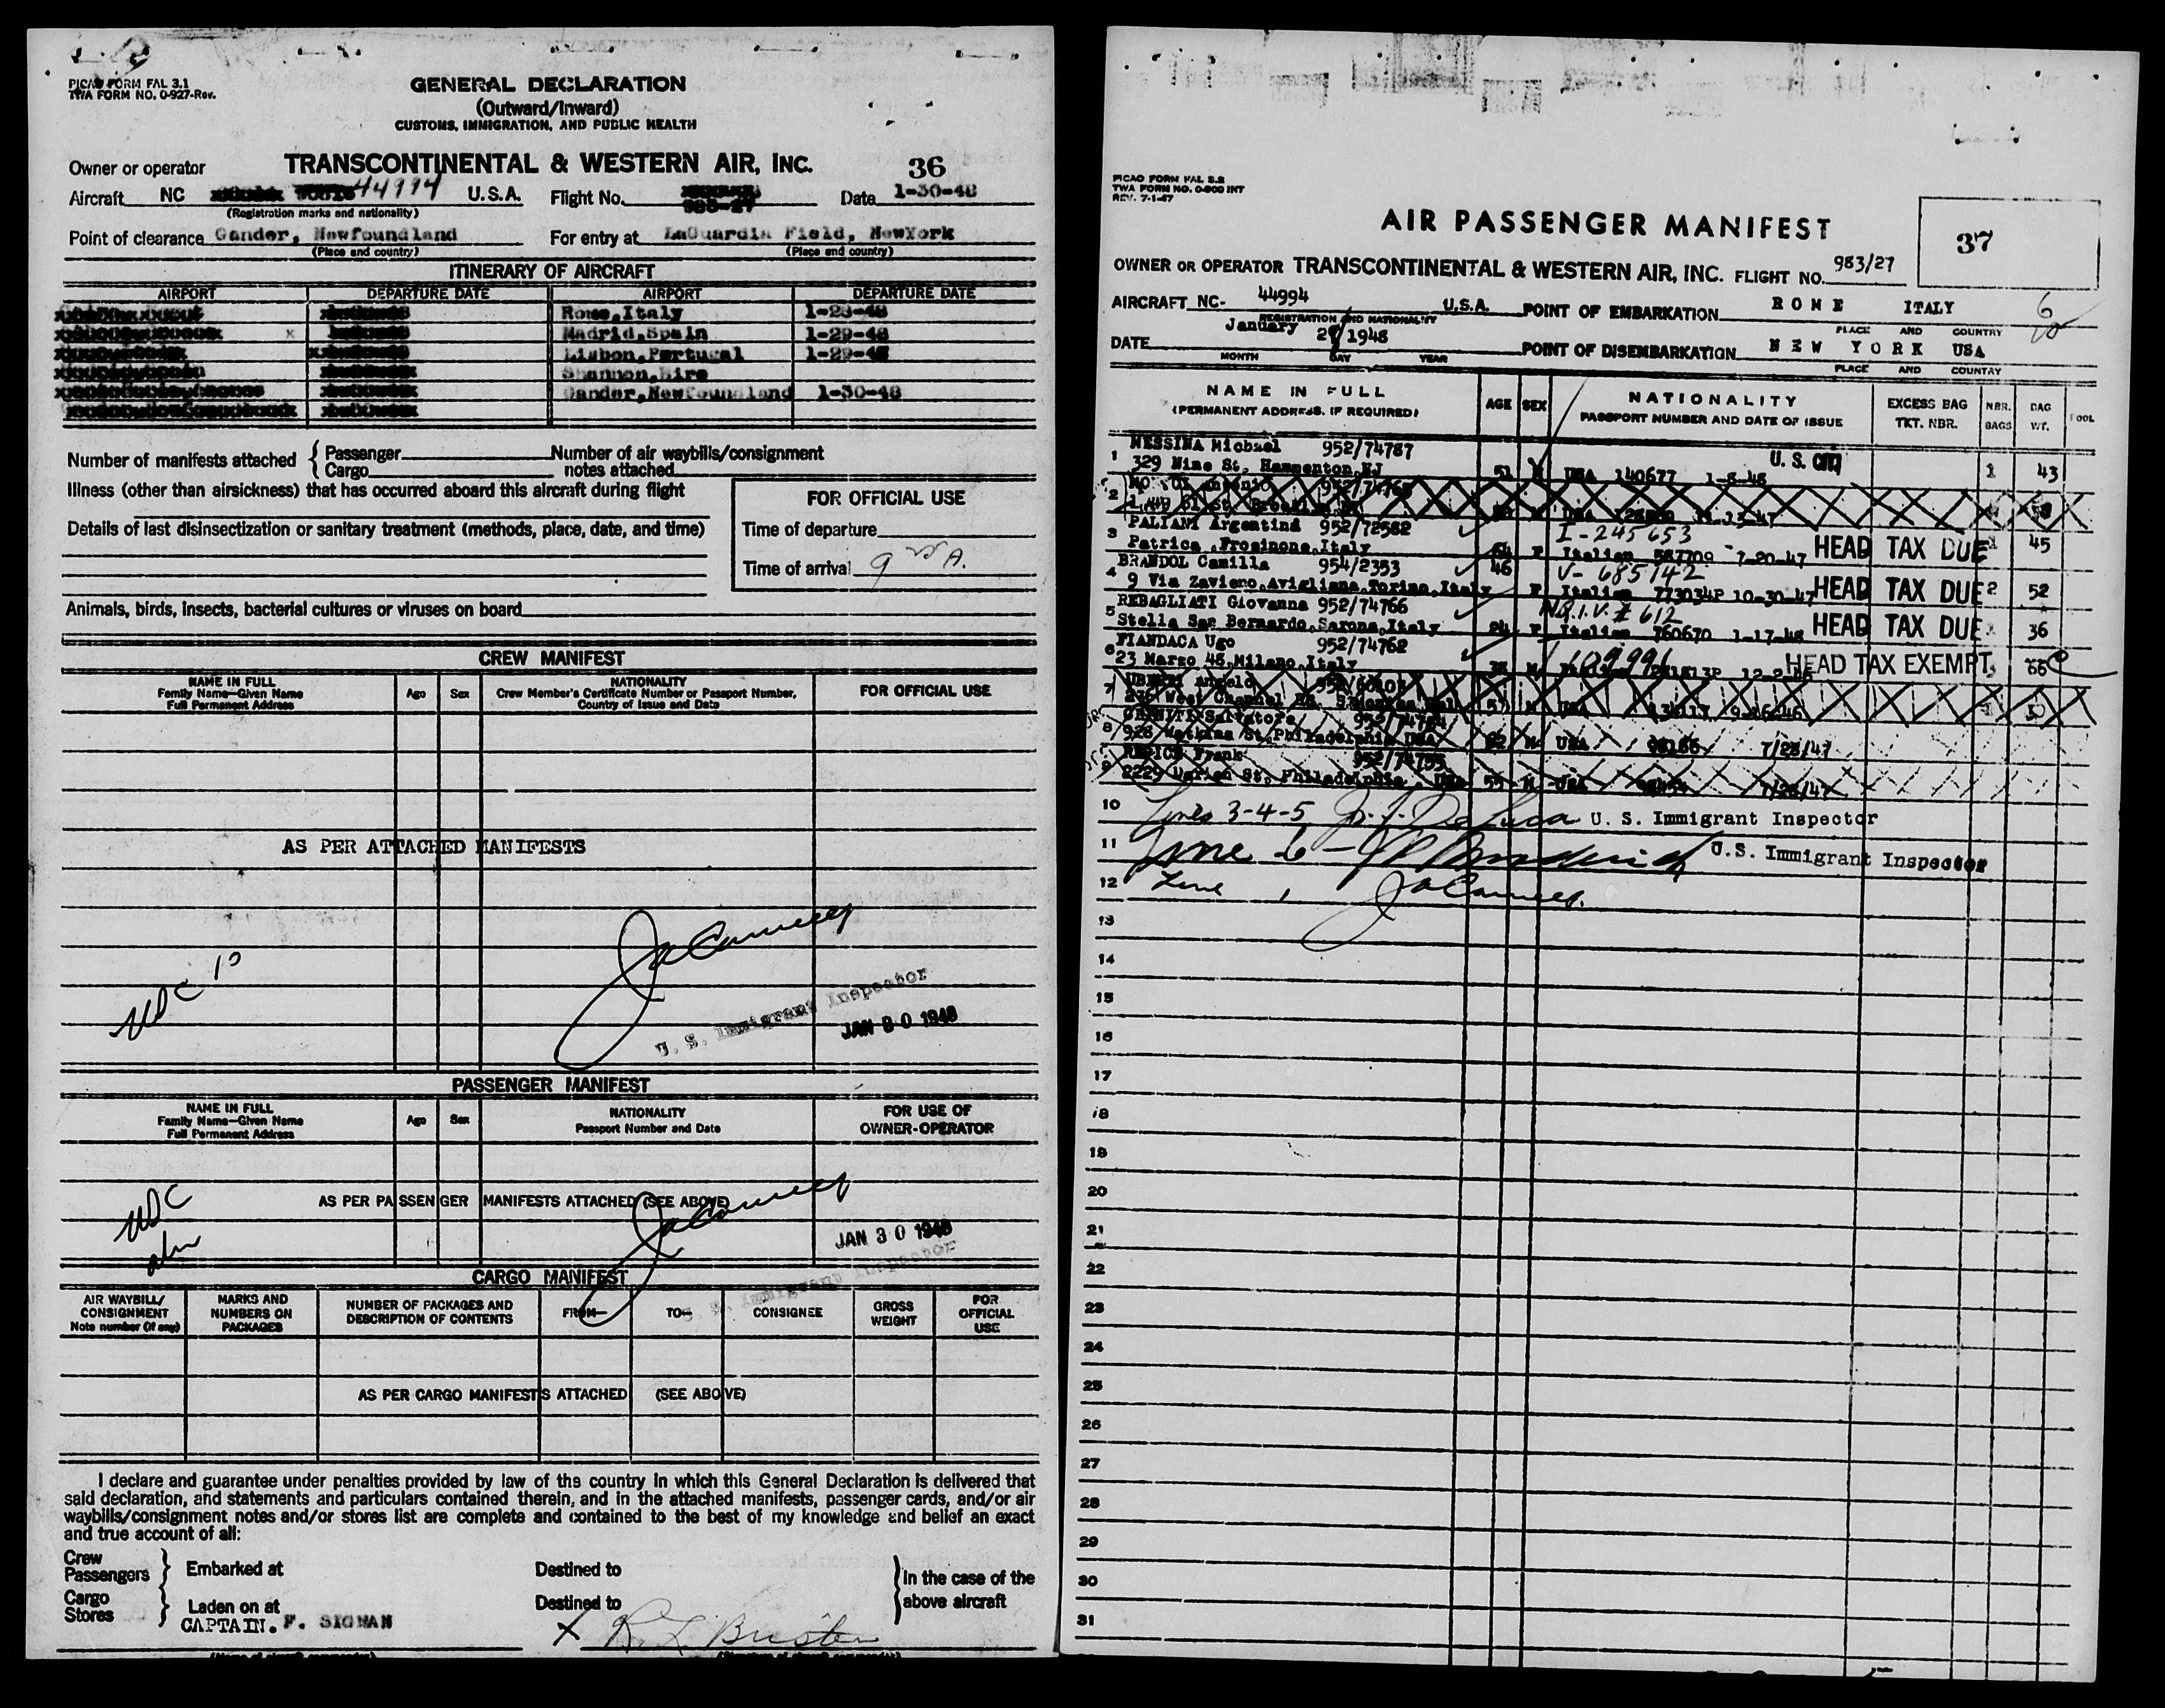 PICAO FORM FAL 3.1
TWA FORM NO. 0-927-Rev.
GENERAL DECLARATION
(Outward/Inward)
CUSTOMS, IMMIGRATION, AND PUBLIC HEALTH
Owner or operator TRANSCONTINENTAL & WESTERN AIR, INC. 36
Aircraft NC 44994 U.S.A. Flight No. Date 1-30-48
(Registration marks and nationality)
Point of clearance Gander, Newfoundland For entry at LaGuardia Field, NewYork
(Place and country) (Place and country)
ITINERARY OF AIRCRAFT
AIRPORT DEPARTURE DATE AIRPORT DEPARTURE DATE
Rome, Italy 1-28-48
Madrid, Spain 1-29-48
Lisbon, Portugal 1-29-48
Shannon, Eire
Gander, Newfoundland 1-30-48
Number of manifests attached { Passenger Number of air waybills/consignment
Cargo notes attached
Illness (other than airsickness) that has occurred aboard this aircraft during flight
FOR OFFICIAL USE
Details of last disinsectization or sanitary treatment (methods, place, date, and time)
Time of departure
Time of arrival 9 A.
Animals, birds, insects, bacterial cultures or viruses on board
CREW MANIFEST
NAME IN FULL
Family Name—Given Name
Full Permanent Address
Age Sex
NATIONALITY
Crew Member's Certificate Number or Passport Number,
Country of Issue and Date
FOR OFFICIAL USE
AS PER ATTACHED MANIFESTS
U. S. Immigrant Inspector
JAN 30 1948
PASSENGER MANIFEST
NAME IN FULL
Family Name—Given Name
Full Permanent Address
Age Sex
NATIONALITY
Passport Number and Date
FOR USE OF
OWNER-OPERATOR
AS PER PASSENGER MANIFESTS ATTACHED (SEE ABOVE)
JAN 30 1948
U. S. Immigrant Inspector
CARGO MANIFEST
AIR WAYBILL/
CONSIGNMENT
Note number (if any)
MARKS AND
NUMBERS ON
PACKAGES
NUMBER OF PACKAGES AND
DESCRIPTION OF CONTENTS
FROM— TO— CONSIGNEE
GROSS
WEIGHT
FOR
OFFICIAL
USE
AS PER CARGO MANIFESTS ATTACHED (SEE ABOVE)
I declare and guarantee under penalties provided by law of the country in which this General Declaration is delivered that
said declaration, and statements and particulars contained therein, and in the attached manifests, passenger cards, and/or air
waybills/consignment notes and/or stores list are complete and contained to the best of my knowledge and belief an exact
and true account of all:
Crew
Passengers } Embarked at Destined to
Cargo
Stores } Laden on at Destined to
} In the case of the
above aircraft
CAPTAIN. F. SIGMAN
PICAO FORM FAL 3.2
TWA FORM NO. 0-800 INT
REV. 7-1-47
AIR PASSENGER MANIFEST
37
OWNER OR OPERATOR TRANSCONTINENTAL & WESTERN AIR, INC. FLIGHT NO. 983/27
AIRCRAFT NC- 44994 U.S.A. POINT OF EMBARKATION ROME ITALY
REGISTRATION AND NATIONALITY PLACE AND COUNTRY
DATE January 1948 POINT OF DISEMBARKATION NEW YORK USA
MONTH DAY YEAR PLACE AND COUNTRY
NAME IN FULL
(PERMANENT ADDRESS, IF REQUIRED)
AGE SEX
NATIONALITY
PASSPORT NUMBER AND DATE OF ISSUE
EXCESS BAG
TKT. NBR.
NBR.
BAGS
BAG
WT.
POOL
1 MESSINA Michael 952/74787 U. S. CIT
329 Nine St, Hammonton, NJ 51 USA 140677 1-8-48 1 43
2
3 PALIANI Argentina 952/72582 I-245653
Patrica, Frosinone, Italy F Italian 587709 7-20-47 HEAD TAX DUE 45
4 BRANDOL Camilla 954/2353 46 V-685142
9 Via Zavieno, Avigliana, Torino, Italy F Italian 773034P 10-30-47 HEAD TAX DUE 2 52
5 REBAGLIATI Giovanna 952/74766 N.Q.I.V. # 612
Stella San Bernardo, Sarona, Italy F Italian 760670 1-17-48 HEAD TAX DUE 36
6 FIANDACA Ugo 952/74762
23 Marzo 48, Milano, Italy HEAD TAX EXEMPT 66
7
8 928 Watkins St, Philadelphia USA 62 M USA 7/28/47
9 Frank
55 M USA 7/28/47
10 Lines 3-4-5 U. S. Immigrant Inspector
11 Line 6 - U.S. Immigrant Inspector
12 Line 1
13
14
15
16
17
18
19
20
21
22
23
24
25
26
27
28
29
30
31